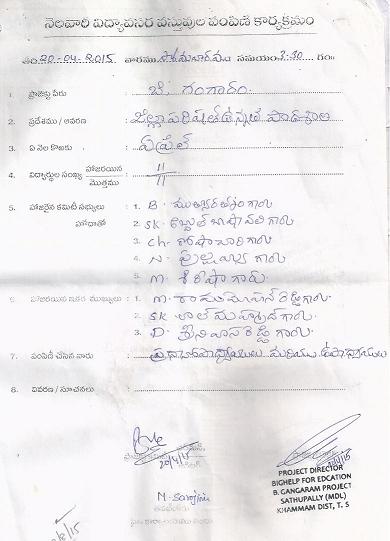 నెలవారీ విద్యావసర వస్తువుల పంపిణీ కార్యక్రమం
తేది: 20-04-2015 వారము సోమవారము సమయం 3-30 గం॥
1. ప్రాజెక్టు పేరు బి. గంగారం
2. ప్రదేశము / ఆవరణ జిల్లా పరిషత్ ఉన్నత పాఠశాల
3. ఏ నెల కొఱకు ఏప్రిల్
4. విద్యార్థుల సంఖ్య హాజరయిన 11
మొత్తము 11
5. హాజరైన కమిటీ సభ్యులు 1. B. గారు
హోదాతో 2. SK. గారు
3. Ch. శేషాచారి గారు
4. N. పుల్లయ్య గారు
5. M. శిరీష గారు
6. హాజరయిన ఇతర ముఖ్యులు 1. M. రామమోహన్ రెడ్డి గారు
2. SK. లాల్ మహ్మద్ గారు
3. D. శ్రీనివాస రెడ్డి గారు
7. పంపిణీ చేసిన వారు ప్రధానోపాధ్యాయులు మరియు ఉపాధ్యాయులు
8. వివరణ / సూచనలు
20/4/15
PROJECT DIRECTOR
BIGHELP FOR EDCATION
B. GANGARAM PROJECT
SATHUPALLY (MDL)
KHAMMAM DIST, T. S
M. Sarojini